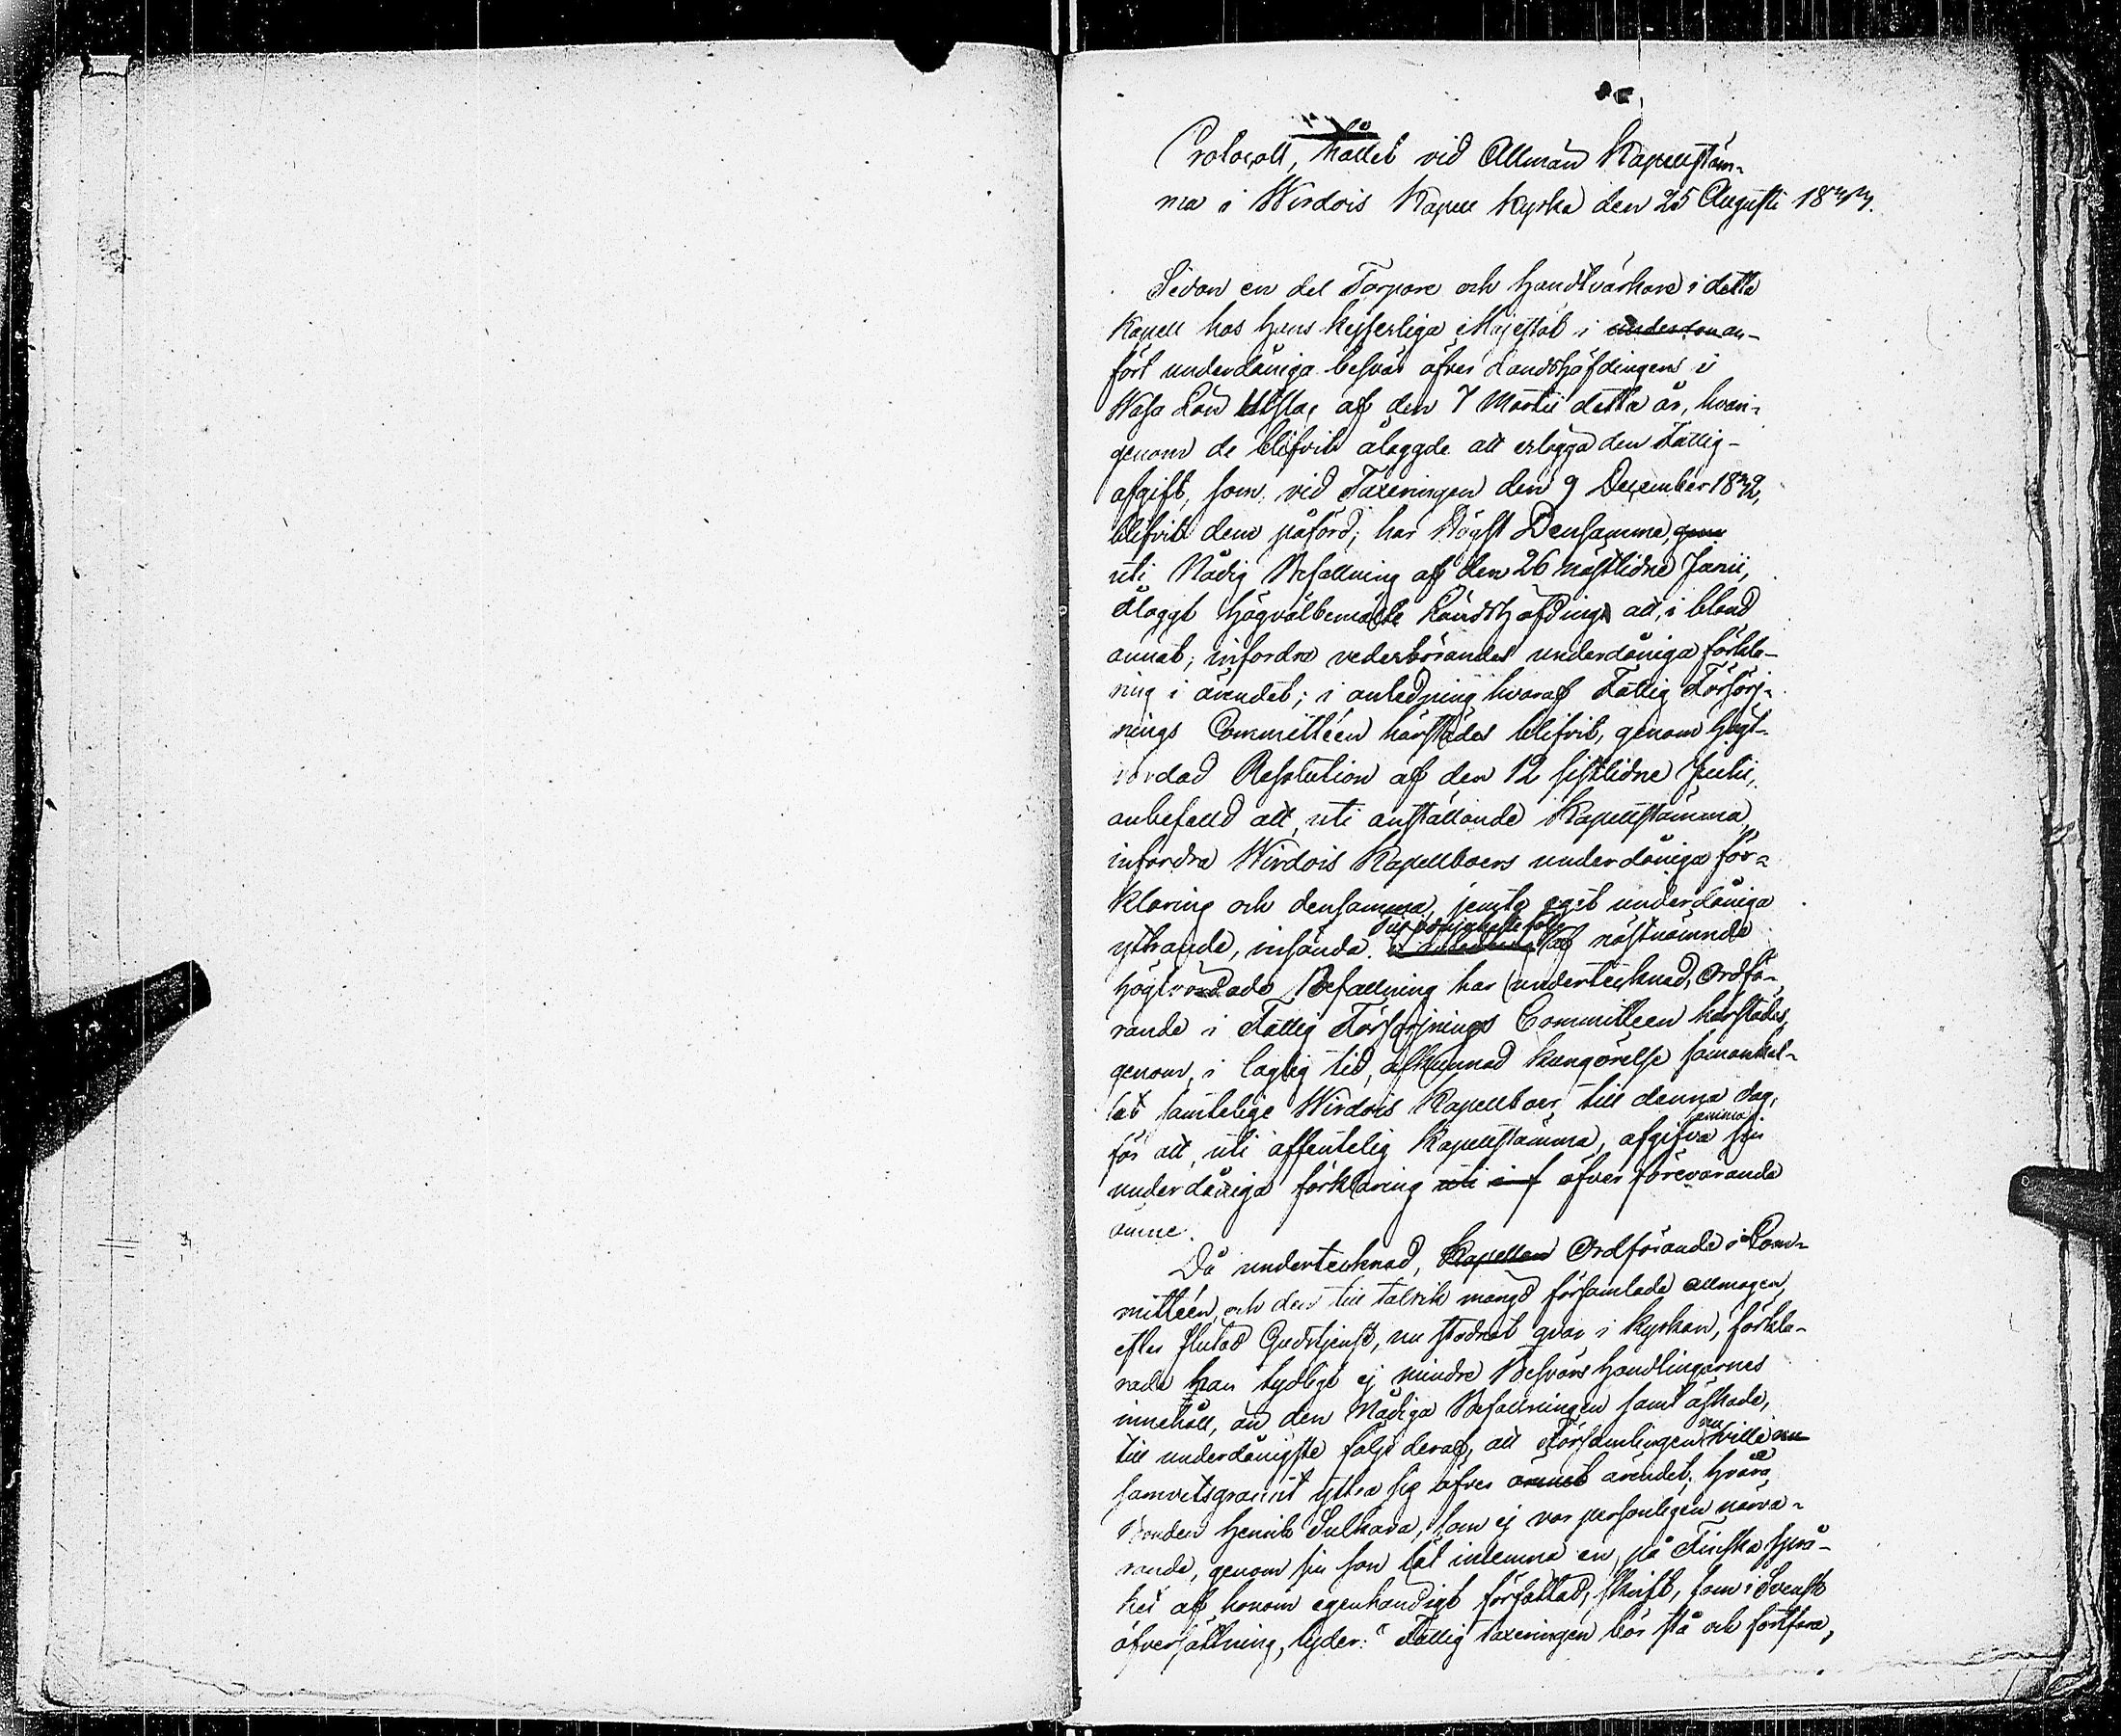 Protocoll, hållet vid Allmän Kapellstäm-
ma i Wirdois Kapell Kyrka den 25 Augusti
Sedan en del Torpare och Handtvärkare i detta
Kapell hos Hans Kejserliga Majestät i underdån an-
fört underdåniga besvär öfver Landshöfdingens i
Wasa Län Utslag af den 7 Martii detta år, hvari-
genom de blifvit ålaggde att erlägga den Fattig-
afgift, som vid Taxeringen den 9 December
blifvit dem påförd; har Högst Densamme, genom
uti Nådig Befallning af den 26 nästlidne Junii,
ålaggt Högvälbemälte Landshöfding att, i bland
annat, infordra vederbörandes underdåniga förkla-
ring i ärendet; i anledning hvaraf Fattig Försörj-
nings Committéen härstädes blifvit, genom Högt-
vördad Resolution af den 12 sistlidne Julii,
anbefalld att, uti anställande Kapellstämma,
infordra Wirdois Kapellboers underdåniga för-
klaring och densamma, jemte eget underdåniga
yttrande, insända. Till ödmjukaste följe af nästnämnde
Högtvördade Befallning har undertecknad, Ordfö-
rande i Fattig Försörjnings Committeen härstädes,
genom, i laglig tid, afkunnad kungörelse samankal-
lat samtelige Wirdois Kapellboer till denna dag,
för att, uti offentelig Kapellstämma, afgifva sin
underdåniga förklaring uti öfver förevarande
ämne.
Då undertecknad, Kapellan Ordförande i Com-
mittéen, och den till talrik mängd församlade allmogen,
efter slutad Gudstjenst, nu stadnat qvar i kyrkan, förkla-
rade han tydligt ej mindre Besvärs Handlingarnes
innehåll, än den Nådiga Befallningen samt äskade,
till underdånigste följe deraf, att Församlingen nu ville nu
samvetsgrannt yttra sig öfver ämnet ärendet; hvarå
Bonden Henrik Sulkava, som ej var personligen närva-
rande, genom sin son lät inlemna en, på Finska språ-
ket af honom egenhändigt författad, skrift, som i Svensk
öfversättning, lyder: "Fattig taxeringen bör stå och fortfara,